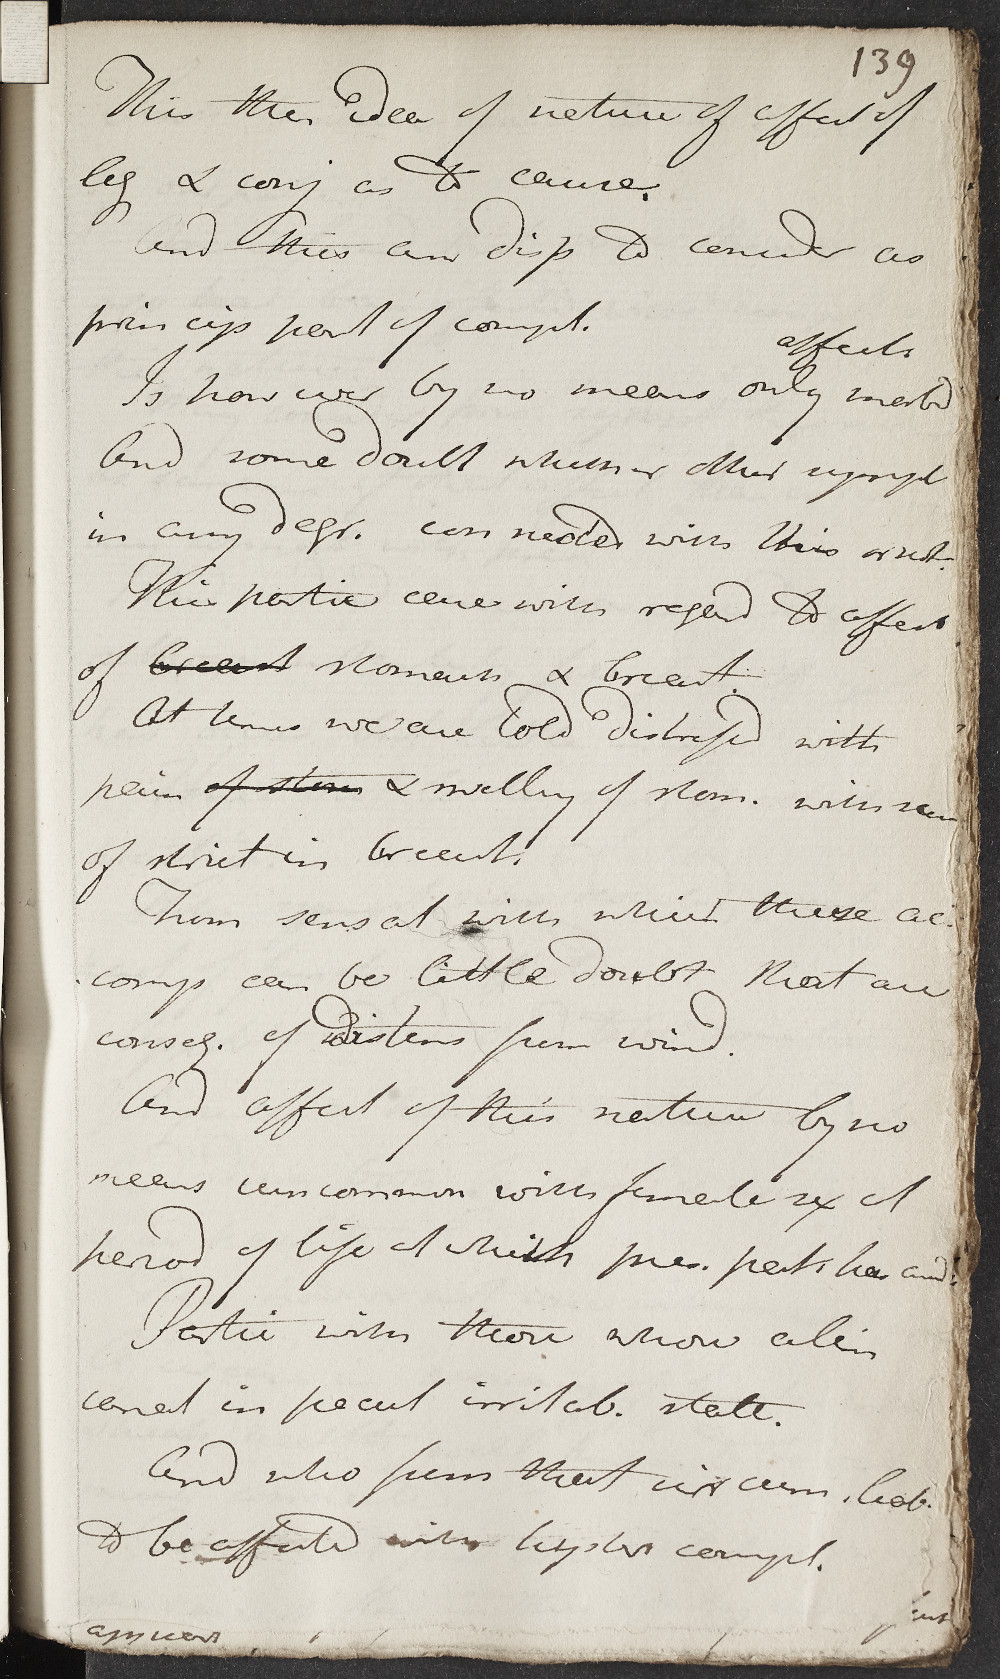 139
This then idea of nature of affect of
leg & conj as to cause.
And this am disp to consider as
princip part of compl.
affects
Is however by no means only morbid
And some doubt whether other sympt
in any degr. connected with this or not.
This partic case with regard to affect
of breast stomach & breast.
At times we are told distressed with
pain of stom & swelling of stom. with sen
of strict in breast.
From sensat with which these ac
comp can be little doubt that are
conseq. of distens from wind.
And affect of this nature by no
means uncommon with female sex at
period of life at which pres. pat has arrd.
Partic with those whose alim
canal in pecul irritab. state.
And who from that circum. liab.
to be affected with hyster compl.
appears